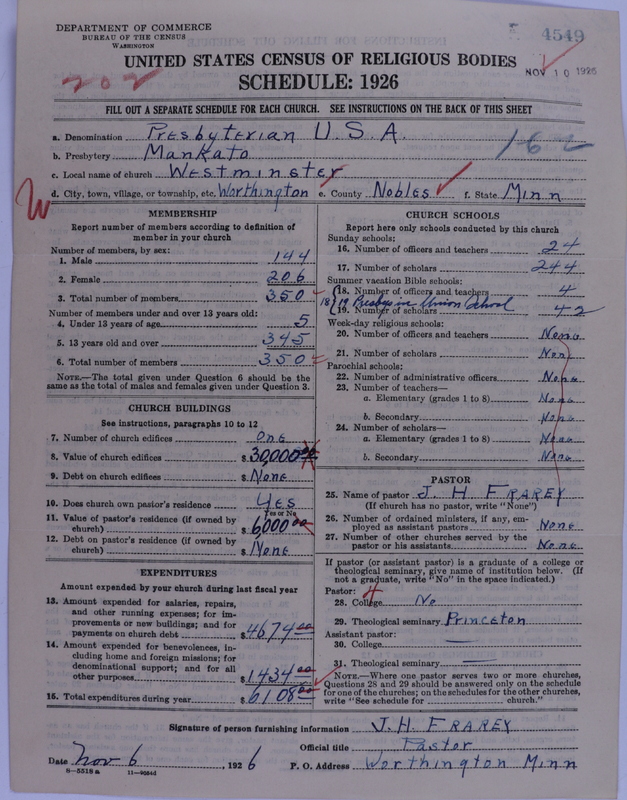 DEPARTMENT OF COMMERCE
BUREAU OF THE CENSUS
WASHINGTON
4549
NOV 10 1926
UNITED STATES CENSUS OF RELIGIOUS BODIES
SCHEDULE: 1926
202
FILL OUT A SEPARATE SCHEDULE FOR EACH CHURCH. SEE INSTRUCTIONS ON THE BACK OF THIS SHEET
a. Denomination Presbyterian U.S.A.
162
b. Presbytery Mankato
c. Local name of church Westminster
W
d. City, town, village, or township, etc. Worthington e. County Nobles f. State Minn
MEMBERSHIP
Report number of members according to definition of
member in your church
Number of members, by sex:
1. Male 144
2. Female 206
3. Total number of members 350
Number of members under and over 13 years old:
4. Under 13 years of age 5
5. 13 years old and over 345
6. Total number of members 350
NOTE.—The total given under Question 6 should be the
same as the total of males and females given under Question 3.
CHURCH BUILDINGS
See instructions, paragraphs 10 to 12
7. Number of church edifices One
8. Value of church edifices $ 30,000 00
9. Debt on church edifices $ None
10. Does church own pastor's residence Yes
Yes or No
11. Value of pastor's residence (if owned by
church) $ 6,000 00
12. Debt on pastor's residence (if owned by
church) $ None
EXPENDITURES
Amount expended by your church during last fiscal year
13. Amount expended for salaries, repairs,
and other running expenses; for im-
provements or new buildings; and for
payments on church debt $ 4674 00
14. Amount expended for benevolences, in-
cluding home and foreign missions; for
denominational support; and for all
other purposes $ 1434 00
15. Total expenditures during year $ 6108 00
CHURCH SCHOOLS
Report here only schools conducted by this church
Sunday schools:
16. Number of officers and teachers 24
17. Number of scholars 244
Summer vacation Bible schools:
18. Number of officers and teachers 4
18 19 Presbys in Union School
19. Number of scholars 42
Week-day religious schools:
20. Number of officers and teachers None
21. Number of scholars None
Parochial schools:
22. Number of administrative officers None
23. Number of teachers—
a. Elementary (grades 1 to 8) None
b. Secondary None
24. Number of scholars—
a. Elementary (grades 1 to 8) None
b. Secondary None
PASTOR
25. Name of pastor J. H. Frarey
(If church has no pastor, write "None")
26. Number of ordained ministers, if any, em-
ployed as assistant pastors None
27. Number of other churches served by the
pastor or his assistants None
If pastor (or assistant pastor) is a graduate of a college or
theological seminary, give name of institution below. (If
not a graduate, write "No" in the space indicated.)
Pastor: 4
28. College No
29. Theological seminary Princeton
Assistant pastor:
30. College —
31. Theological seminary —
NOTE.—Where one pastor serves two or more churches,
Questions 28 and 29 should be answered only on the schedule
for one of the churches; on the schedules for the other churches,
write "See schedule for church."
Signature of person furnishing information J. H. Frarey
Official title Pastor
Date Nov 6, 1926 P. O. Address Worthington Minn
8—5518 a 11—9054d